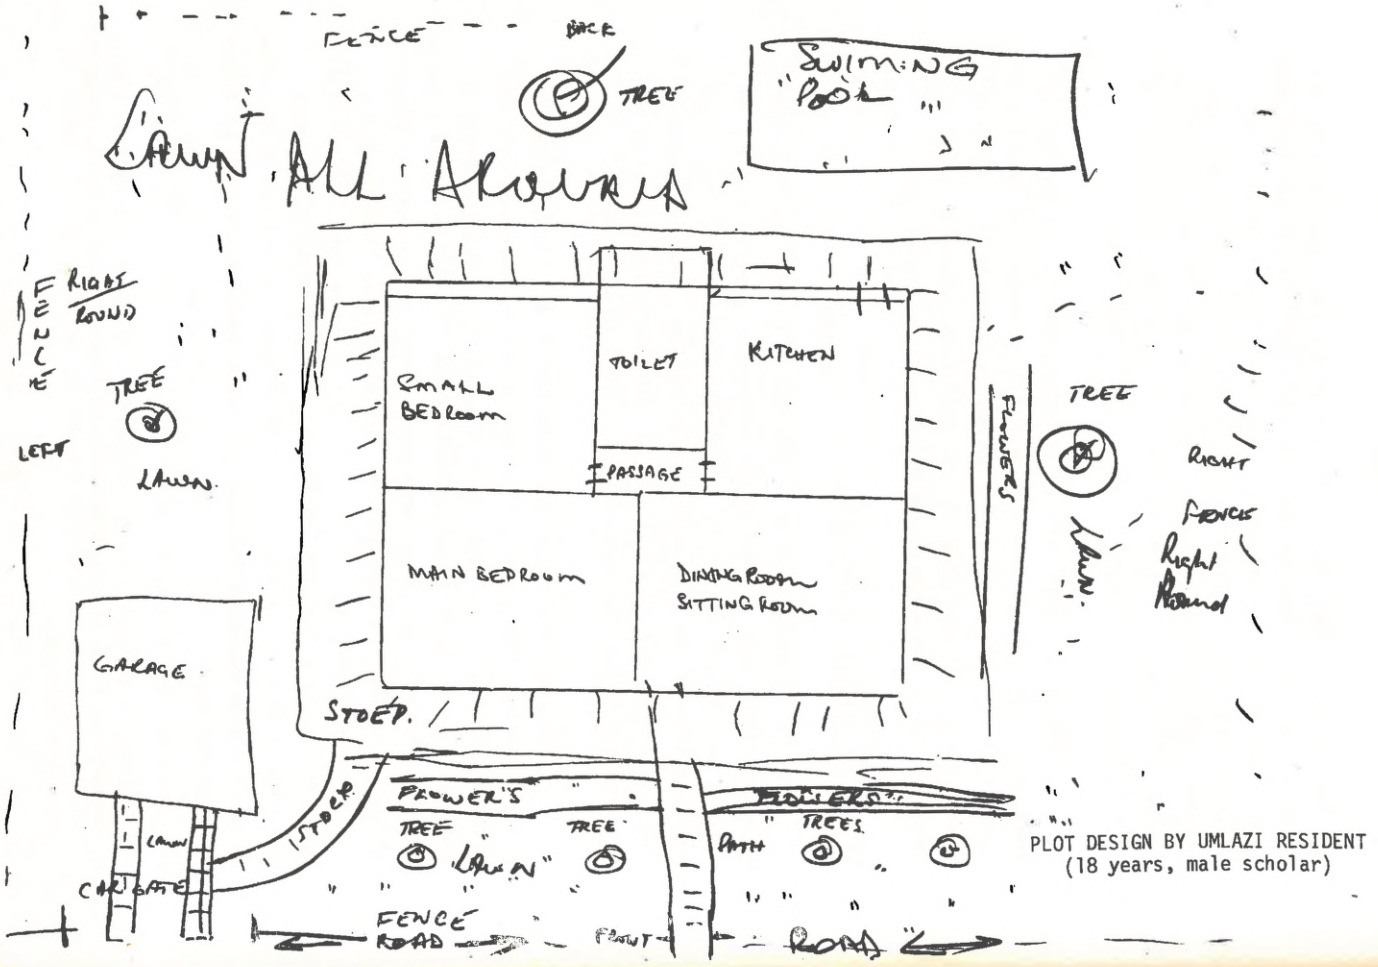 FENCE
BACK
TREE
SWIMING
"POOL
LAWN ALL AROUND
FENCE
RIGHT
ROUND
TREE
LEFT
LAWN.
SMALL
BEDROOM
TOILET
KITCHEN
PASSAGE
MAIN BEDROOM
DINING ROOM
SITTING ROOM
FLOWERS
TREE
LAWN.
RIGHT
FENCE
Right
Round
GARAGE
STOEP.
STOEP
LAWN
CAR GATE
FLOWER'S
FLOWERS
TREE
TREE
"LAWN"
PATH
TREES
PLOT DESIGN BY UMLAZI RESIDENT
(18 years, male scholar)
FENCE
ROAD
FRONT
ROAD